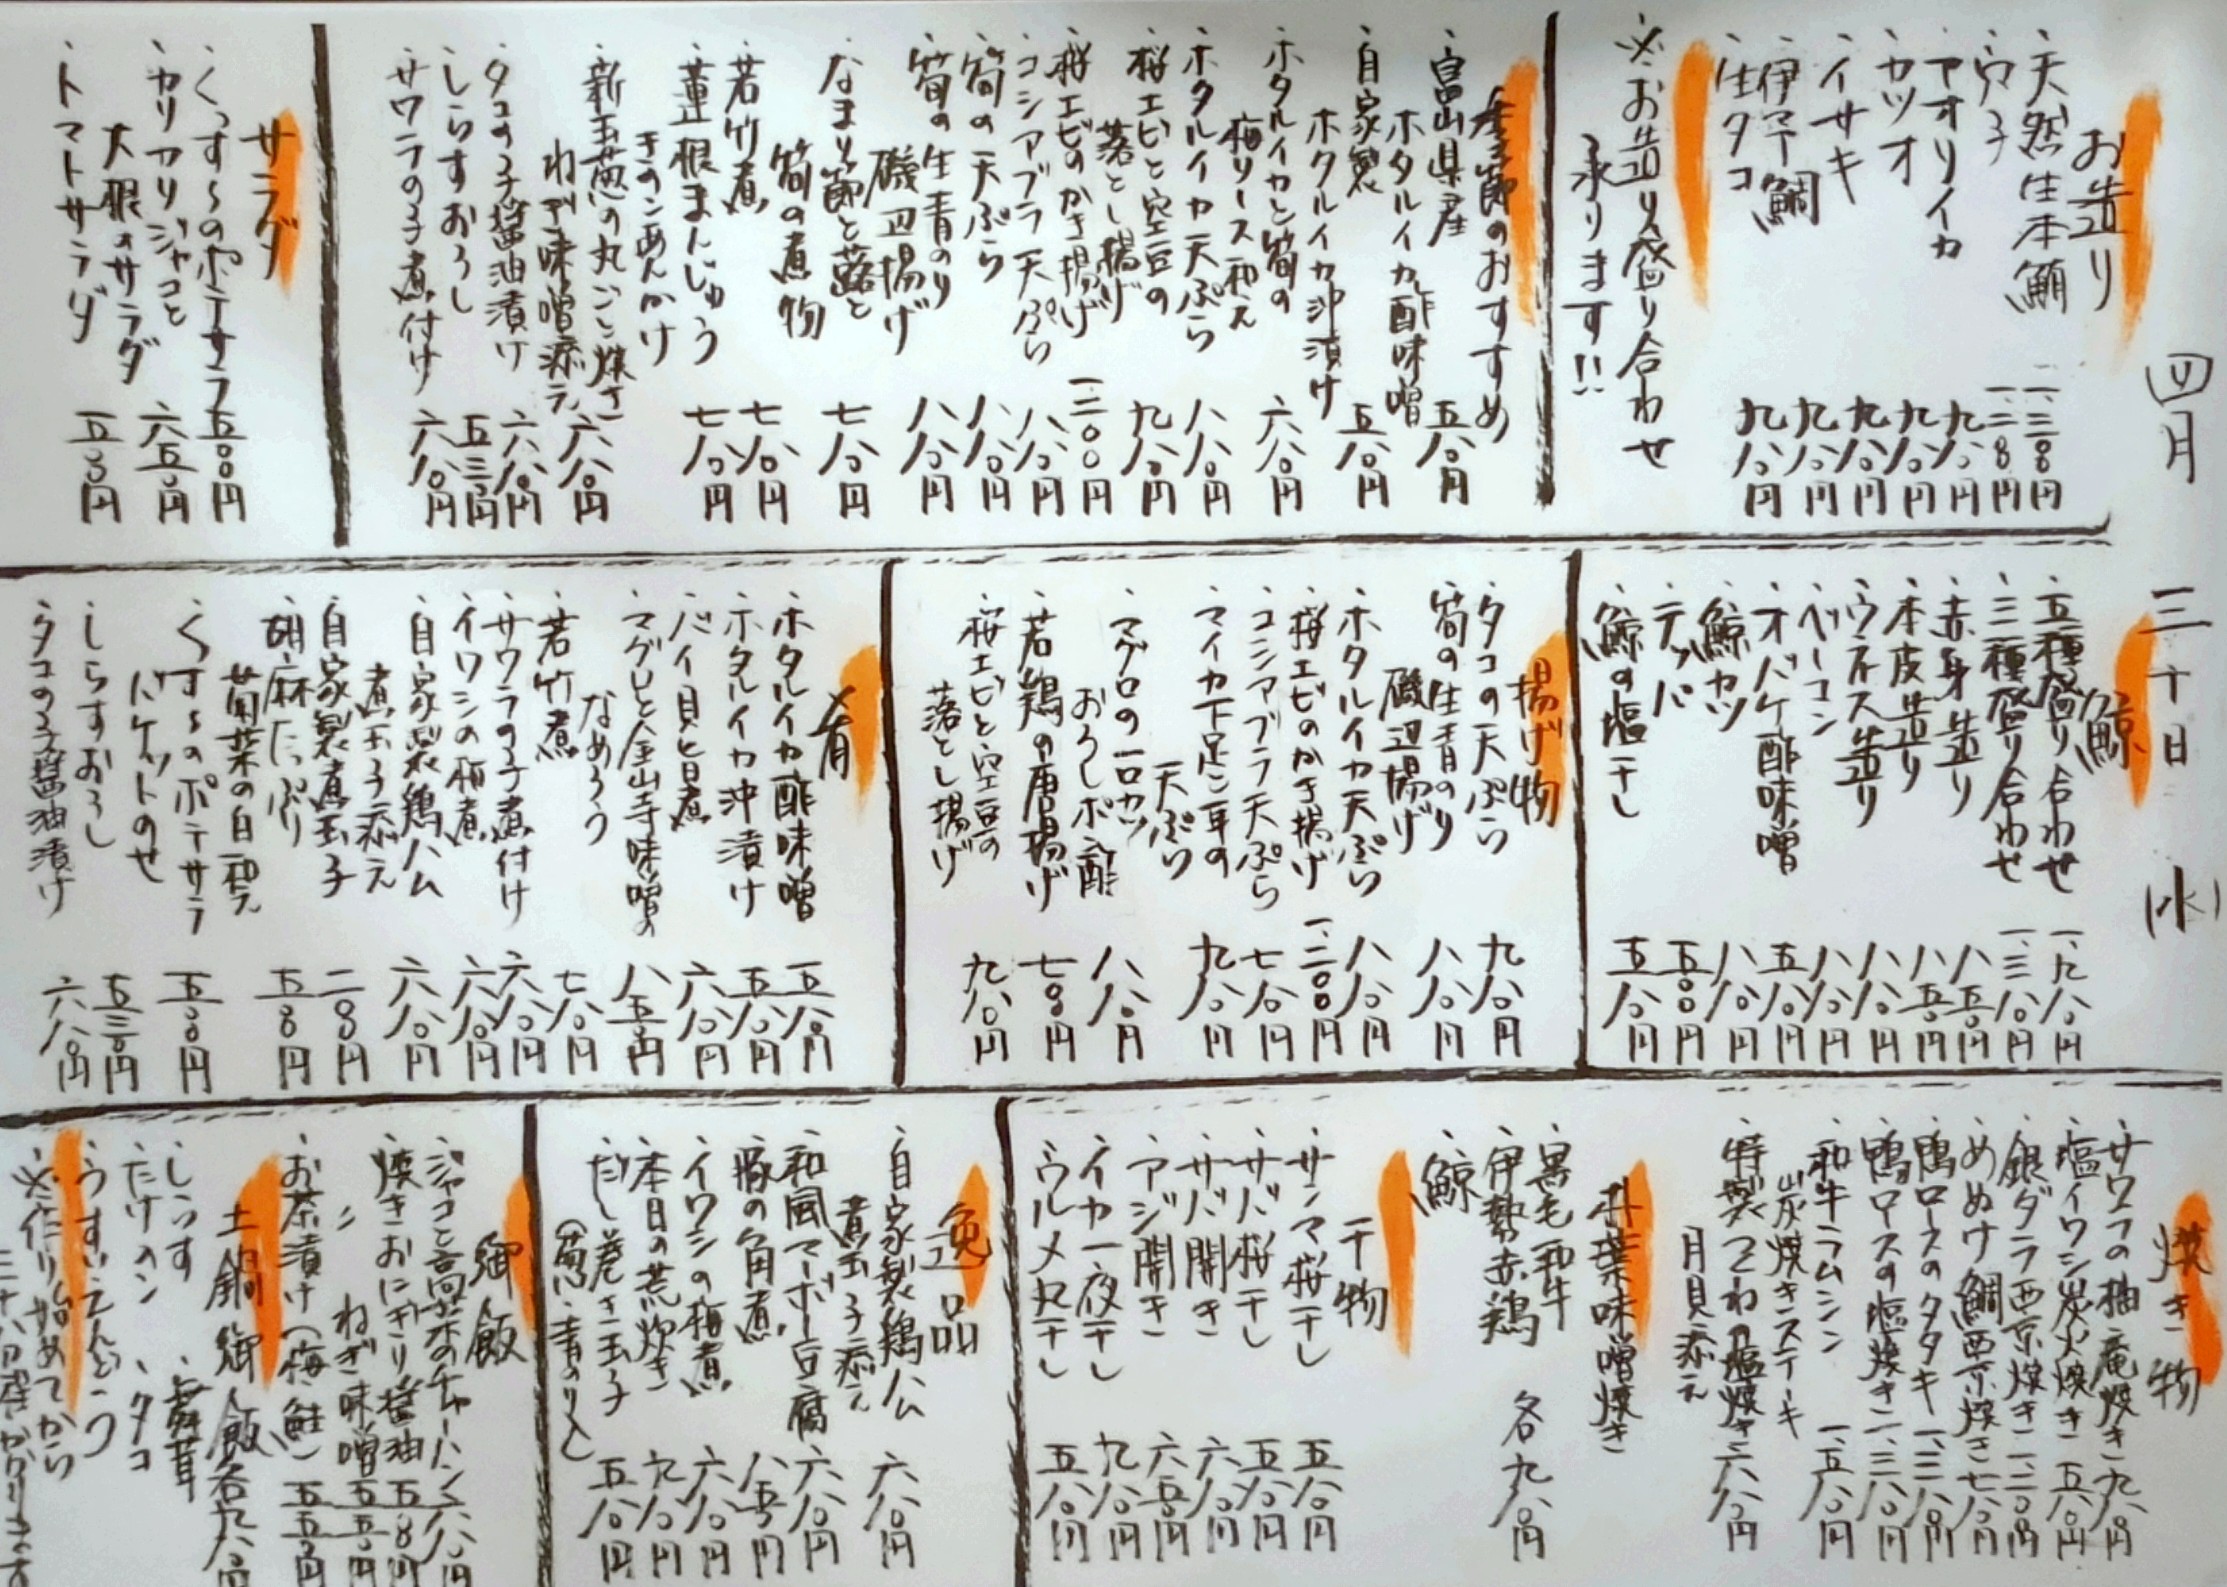 四月 三十日 (水)
お造り
・天然生本鮪 一、三〇〇円
・穴子 一、二〇〇円
・アオリイカ 九八〇円
・カツオ 九八〇円
・イサキ 九八〇円
・伊予鯛 九八〇円
・生タコ 九八〇円
※お造り盛り合わせ
承ります!!
季節のおすすめ
・富山県産
ホタルイカ酢味噌 五八〇円
・自家製
ホタルイカ沖漬け 五八〇円
・ホタルイカと筍の
梅ソース和え 六八〇円
・ホタルイカ天ぷら 八八〇円
・桜エビと空豆の
落とし揚げ 九八〇円
・桜エビのかき揚げ 一二〇〇円
・コシアブラ天ぷら 八八〇円
・筍の天ぷら 八八〇円
・筍の生青のり
磯辺揚げ 八八〇円
・なまり節と蕗と
筍の煮物 七八〇円
・若竹煮 七八〇円
・蓮根まんじゅう
きのこあんかけ 七八〇円
・新玉葱の丸ごと焼き
ねぎ味噌添え 六八〇円
・タコの子醤油漬け 六八〇円
・しらすおろし 五三〇円
・サワラの子煮付け 六八〇円
サラダ
・くっす〜のポテサラ 五〇〇円
・カリカリジャコと
大根のサラダ 六五〇円
・トマトサラダ 五〇〇円
鯨
・五種盛り合わせ 一、九八〇円
・三種盛り合わせ 一、三八〇円
・赤身造り 八五〇円
・本皮造り 八五〇円
・ウネス造り 八八〇円
・ベーコン 八八〇円
・オバケ酢味噌 五八〇円
・鯨カツ 八八〇円
・テッパ 五〇〇円
・鯨の塩干し 五八〇円
揚げ物
・タコの天ぷら 九八〇円
・筍の生青のり
磯辺揚げ 八八〇円
・ホタルイカ天ぷら 八八〇円
・桜エビのかき揚げ 一、二〇〇円
・コシアブラ天ぷら 七八〇円
・マイカ下足と耳の
天ぷら 九八〇円
・マグロの一口カツ
おろしポン酢 八八〇円
・若鶏の唐揚げ 七〇〇円
・桜エビと空豆の
落とし揚げ 九八〇円
肴
・ホタルイカ酢味噌 五八〇円
・ホタルイカ沖漬け 五八〇円
・バイ貝旨煮 六八〇円
・マグロと金山寺味噌の
なめろう 八五〇円
・若竹煮 七八〇円
・サワラの子煮付け 六八〇円
・イワシの梅煮 六八〇円
・自家製鶏ハム
煮玉子添え 六八〇円
・自家製煮玉子 二〇〇円
・胡麻たっぷり
菊菜の白和え 五〇〇円
・くす〜のポテサラ
バケットのせ 五〇〇円
・しらすおろし 五三〇円
・タコの子醤油漬け 六八〇円
焼き物
・サワラの柚庵焼き 九八〇円
・塩イワシ炭火焼き 五八〇円
・銀ダラ西京焼き 一、二〇〇円
・めぬけ鯛西京焼き 七八〇円
・鴨ロースのタタキ 一、三八〇円
・鴨ロースの塩焼き 一、三八〇円
・和牛ラムシン
炭焼きステーキ 一、五八〇円
・特製つくねの塩焼き
月見添え 六八〇円
朴葉味噌焼き
・黒毛和牛
・伊勢赤鶏
・鯨
各九八〇円
干物
・サンマ桜干し 五八〇円
・サバ桜干し 五八〇円
・サバ開き 六八〇円
・アジ開き 六五〇円
・イカ一夜干し 九八〇円
・ウルメ丸干し 五八〇円
逸品
・自家製鶏ハム
煮玉子添え 六八〇円
・和風マーボー豆腐 六八〇円
・豚の角煮 八五〇円
・イワシの梅煮 六八〇円
・本日の荒炊き 九八〇円
・だし巻き玉子
(葱・青のり入) 五八〇円
御飯
・ジャコと高菜のチャーハン 六八〇円
・焼きおにぎり醤油 五〇〇円
・〃 ねぎ味噌 五五〇円
・お茶漬け(梅・鮭) 五五〇円
土鍋御飯 各九八〇円
・しらす ・舞茸
・たけのこ ・タコ
・うすいえんどう
※作り始めてから